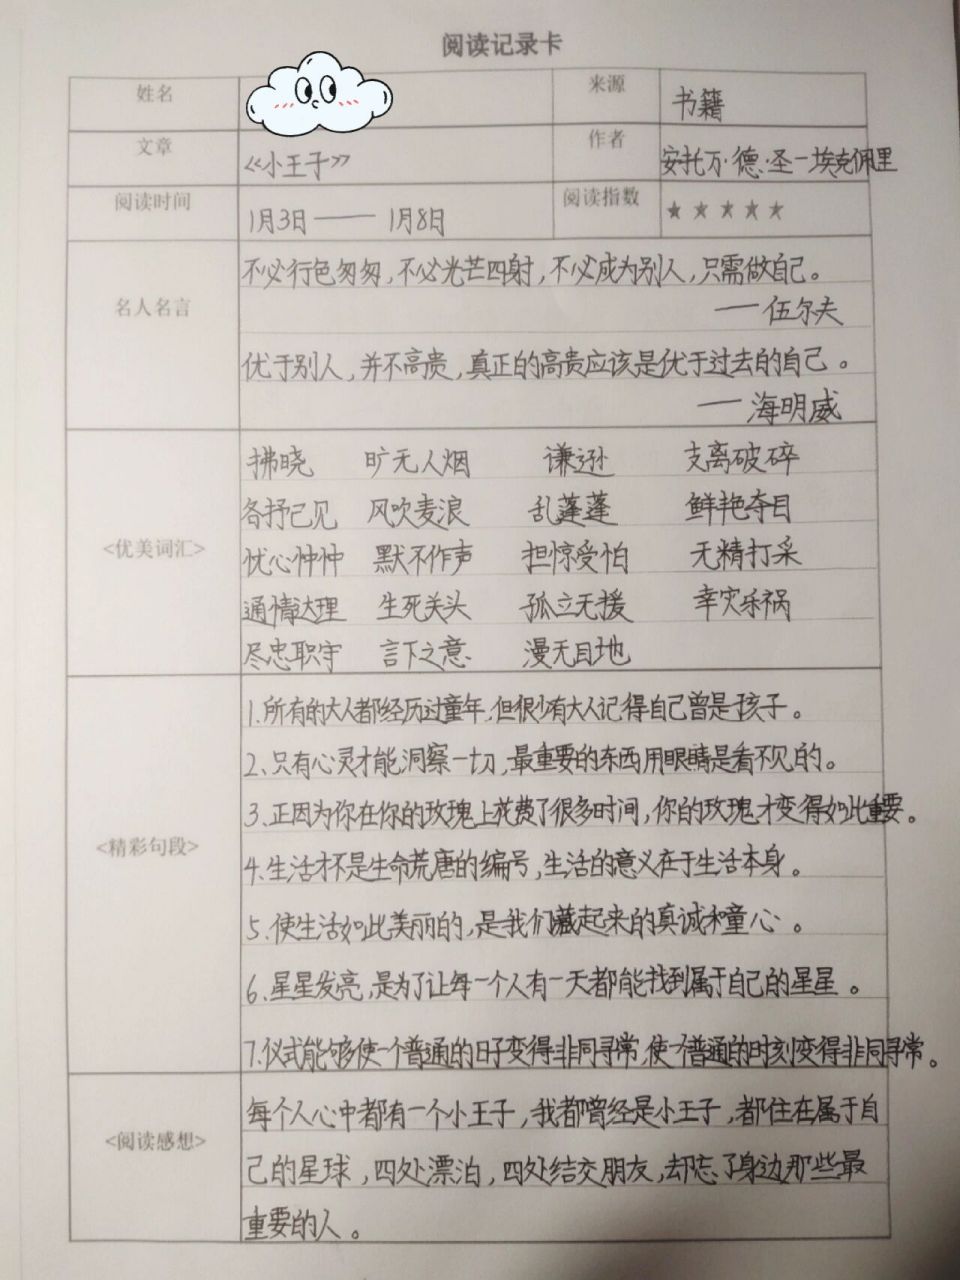 阅读记录卡
姓名 来源 书籍
文章 《小王子》 作者 安托万·德·圣-埃克佩里
阅读时间 1月3日——1月8日 阅读指数 ★★★★★
名人名言
不必行色匆匆,不必光芒四射,不必成为别人,只需做自己。
——伍尔夫
优于别人,并不高贵,真正的高贵应该是优于过去的自己。
——海明威
<优美词汇>
拂晓 旷无人烟 谦逊 支离破碎
各抒己见 风吹麦浪 乱蓬蓬 鲜艳夺目
忧心忡忡 默不作声 担惊受怕 无精打采
通情达理 生死关头 孤立无援 幸灾乐祸
尽忠职守 言下之意 漫无目地
<精彩句段>
1.所有的大人都经历过童年,但很少有大人记得自己曾是孩子。
2、只有心灵才能洞察一切,最重要的东西用眼睛是看不见的。
3、正因为你在你的玫瑰上花费了很多时间,你的玫瑰才变得如此重要。
4.生活才不是生命荒唐的编号,生活的意义在于生活本身。
5、使生活如此美丽的,是我们藏起来的真诚和童心。
6、星星发亮,是为了让每一个人有一天都能找到属于自己的星星。
7.仪式能够使一个普通的日子变得非同寻常,使一个普通的时刻变得非同寻常。
<阅读感想>
每个人心中都有一个小王子,我都曾经是小王子,都住在属于自
己的星球,四处漂泊,四处结交朋友,却忘了身边那些最
重要的人。